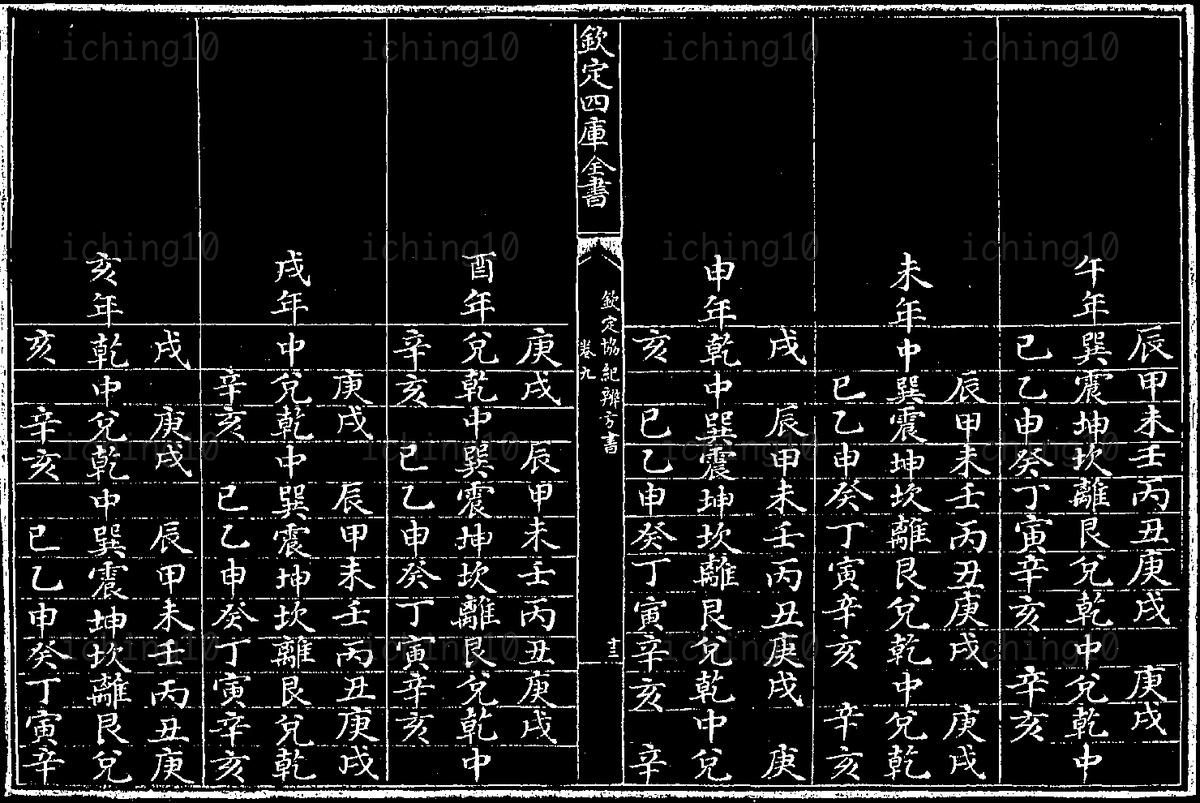 辰甲未壬丙丑庚戌 庚戌
午年巽震坤坎離艮兌乾中兌乾中
巳乙申癸丁寅辛亥 辛亥
辰甲未壬丙丑庚戌 庚戌
未年中巽震坤坎離艮兌乾中兌乾
巳乙申癸丁寅辛亥 辛亥
戌 辰甲未壬丙丑庚戌 庚
申年乾中巽震坤坎離艮兌乾中兌
亥 巳乙申癸丁寅辛亥 辛
欽定四庫全書
欽定協紀辨方書
卷九
十三
庚戌 辰甲未壬丙丑庚戌
酉年兌乾中巽震坤坎離艮兌乾中
辛亥 巳乙申癸丁寅辛亥
庚戌 辰甲未壬丙丑庚戌
戌年中兌乾中巽震坤坎離艮兌乾
辛亥 巳乙申癸丁寅辛亥
戌 庚戌 辰甲未壬丙丑庚
亥年乾中兌乾中巽震坤坎離艮兌
亥 辛亥 巳乙申癸丁寅辛
iching10 iching10 iching10 iching10
iching10 iching10 iching10 iching10
iching10 iching10 iching10 iching10
iching10 iching10 iching10 iching10